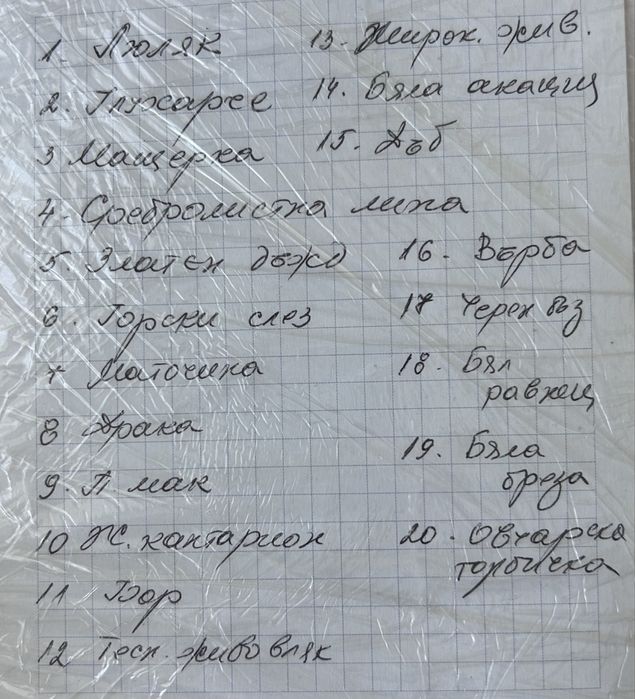 1. Люляк
2. Глухарче
3 Мащерка
4. Сребролистна липа
5. Златен дъжд
6. Горски слез
7 Маточина
8 Драка
9. П. мак
10 Ж. кантарион
11 Бор
12 Тесн. живовляк
13. Широк. жив.
14. Бяла акация
15. Дъб
16. Върба
17 Черен бъз
18. Бял
равнец
19. Бяла
бреза
20. Овчарска
торбичка